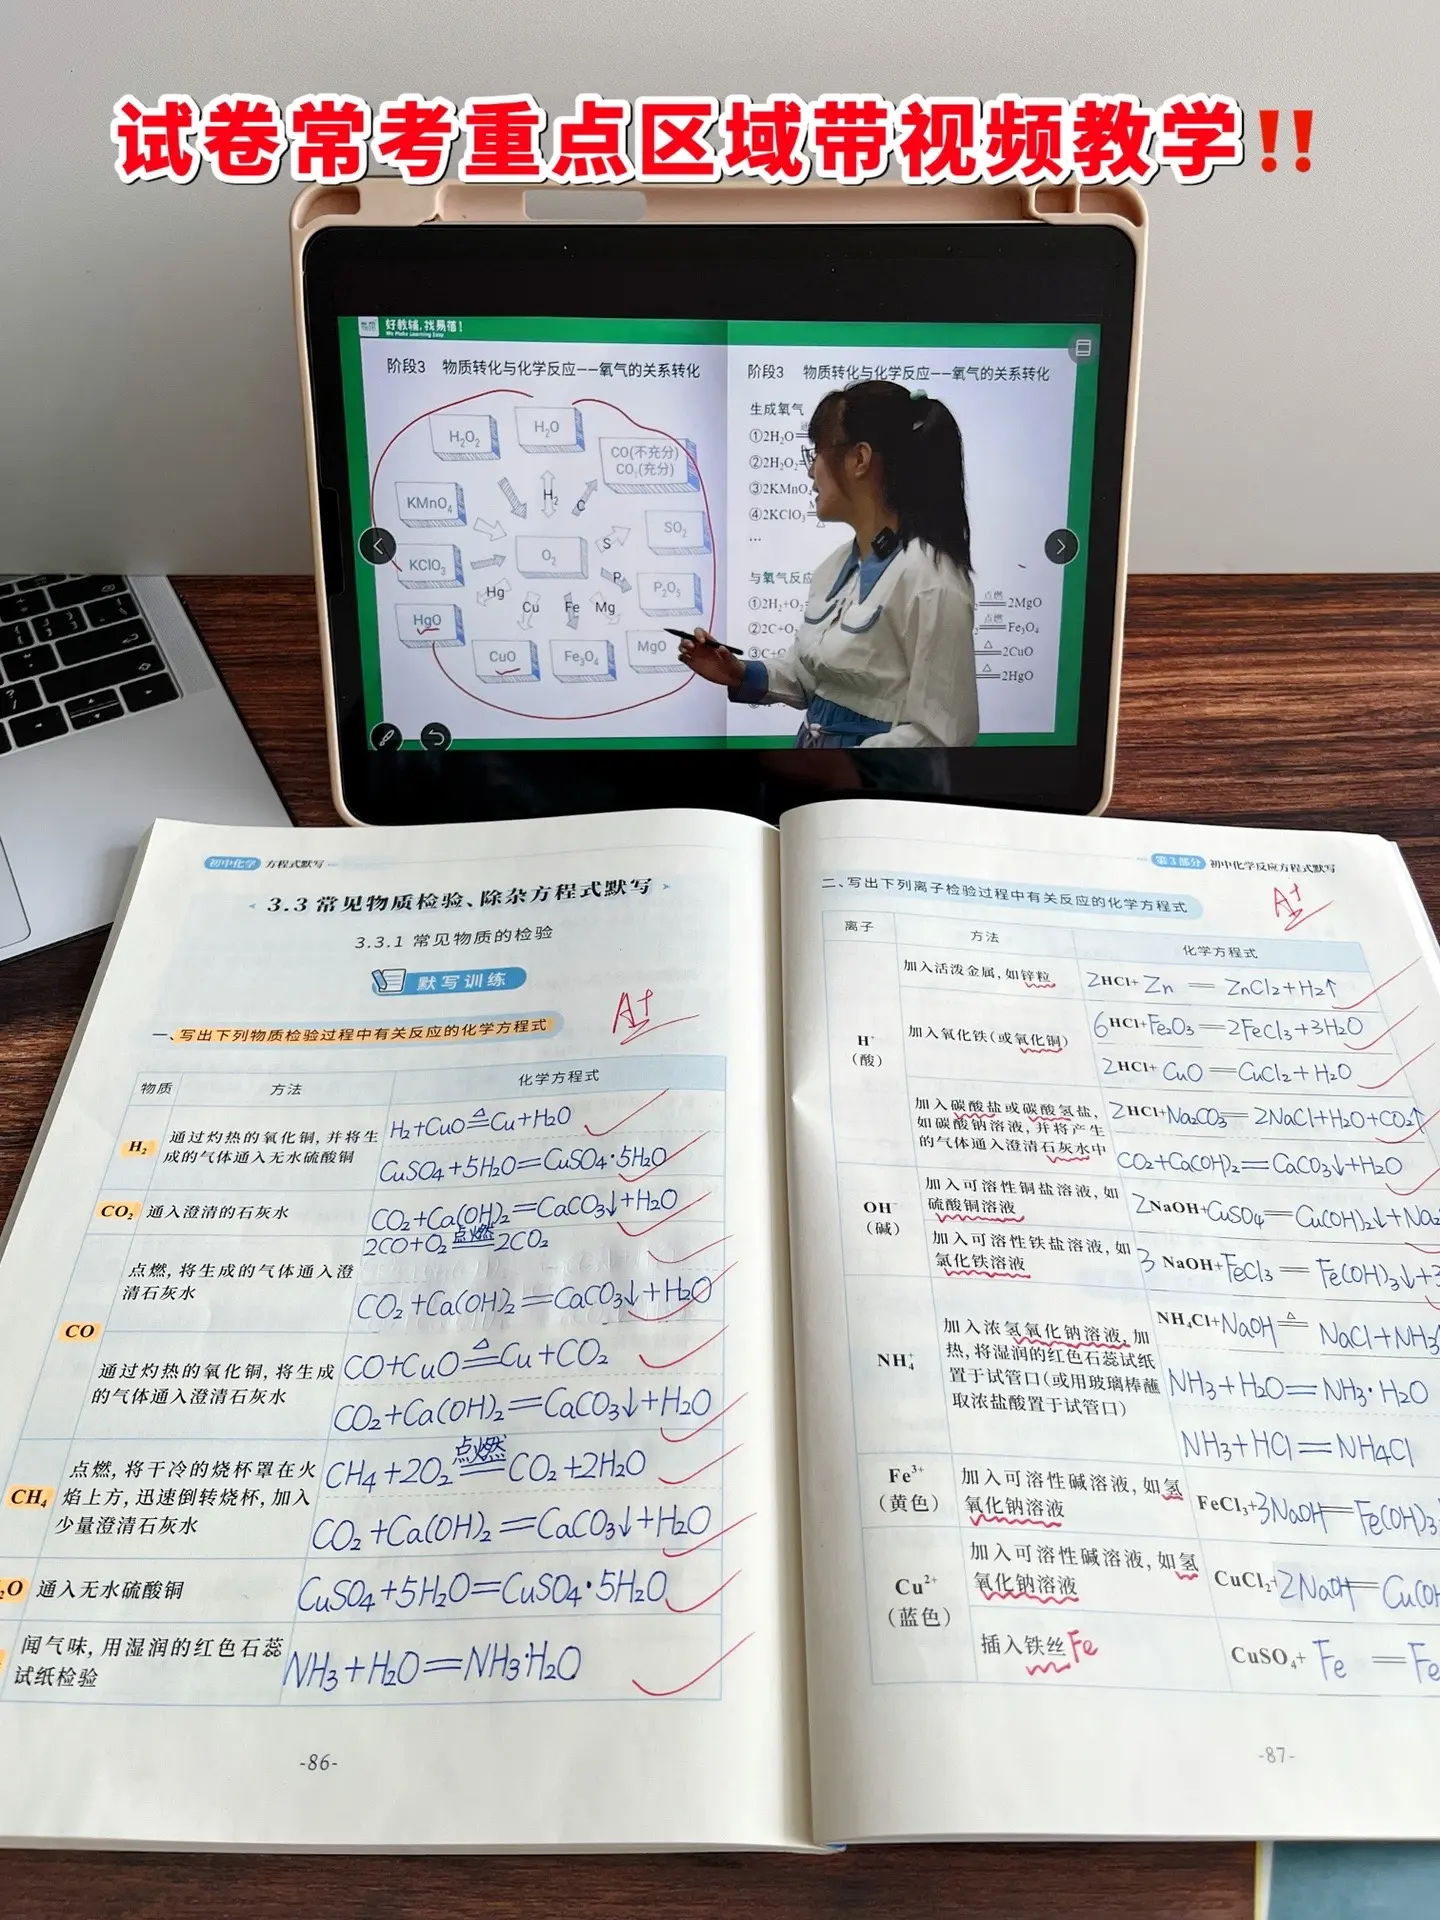 试卷常考重点区域带视频教学‼
好教辅,找易蓓!
We Make Learning Easy
阶段3 物质转化与化学反应——氧气的关系转化
H₂O₂
H₂O
CO(不充分)
CO₂(充分)
KMnO₄
H₂
C
SO₂
KClO₃
O₂
S
P
P₂O₅
Hg
Cu
Fe
Mg
HgO
CuO
Fe₃O₄
MgO
阶段3 物质转化与化学反应——氧气的关系转化
生成氧气
①2H₂O
②2H₂O₂
③2KMnO₄
④2KClO₃
△
…
与氧气反应
①2H₂+O₂
②2C+O₂
③C+O
点燃
2MgO
点燃
Fe₃O₄
△
2CuO
△
2HgO
初中化学 方程式默写
3.3 常见物质检验、除杂方程式默写
3.3.1 常见物质的检验
默写训练
A+
一、写出下列物质检验过程中有关反应的化学方程式
物质 方法 化学方程式
H₂
通过灼热的氧化铜,并将生
成的气体通入无水硫酸铜
H₂+CuO≜Cu+H₂O
CuSO₄+5H₂O=CuSO₄·5H₂O
CO₂ 通入澄清的石灰水
CO₂+Ca(OH)₂=CaCO₃↓+H₂O
CO
点燃,将生成的气体通入澄
清石灰水
点燃
2CO+O₂=2CO₂
CO₂+Ca(OH)₂=CaCO₃↓+H₂O
通过灼热的氧化铜,将生成
的气体通入澄清石灰水
CO+CuO≜Cu+CO₂
CO₂+Ca(OH)₂=CaCO₃↓+H₂O
CH₄
点燃,将干冷的烧杯罩在火
焰上方,迅速倒转烧杯,加入
少量澄清石灰水
点燃
CH₄+2O₂=CO₂+2H₂O
CO₂+Ca(OH)₂=CaCO₃↓+H₂O
₂O 通入无水硫酸铜
CuSO₄+5H₂O=CuSO₄·5H₂O
闻气味,用湿润的红色石蕊
试纸检验
NH₃+H₂O=NH₃·H₂O
-86-
第3部分 初中化学反应方程式默写
二、写出下列离子检验过程中有关反应的化学方程式
A+
离子 方法 化学方程式
H⁺
(酸)
加入活泼金属,如锌粒
2HCl+Zn=ZnCl₂+H₂↑
加入氧化铁(或氧化铜)
6HCl+Fe₂O₃=2FeCl₃+3H₂O
2HCl+CuO=CuCl₂+H₂O
加入碳酸盐或碳酸氢盐,
如碳酸钠溶液,并将产生
的气体通入澄清石灰水中
2HCl+Na₂CO₃=2NaCl+H₂O+CO₂↑
CO₂+Ca(OH)₂=CaCO₃↓+H₂O
OH⁻
(碱)
加入可溶性铜盐溶液,如
硫酸铜溶液
2NaOH+CuSO₄=Cu(OH)₂↓+Na₂
加入可溶性铁盐溶液,如
氯化铁溶液
3NaOH+FeCl₃=Fe(OH)₃↓+3
NH₄⁺
加入浓氢氧化钠溶液,加
热,将湿润的红色石蕊试纸
置于试管口(或用玻璃棒蘸
取浓盐酸置于试管口)
NH₄Cl+NaOH≜NaCl+NH₃↑
NH₃+H₂O=NH₃·H₂O
NH₃+HCl=NH₄Cl
Fe³⁺
(黄色)
加入可溶性碱溶液,如氢
氧化钠溶液
FeCl₃+3NaOH=Fe(OH)₃
Cu²⁺
(蓝色)
加入可溶性碱溶液,如氢
氧化钠溶液
CuCl₂+2NaOH=Cu(OH
插入铁丝Fe
CuSO₄+Fe=Fe
-87-